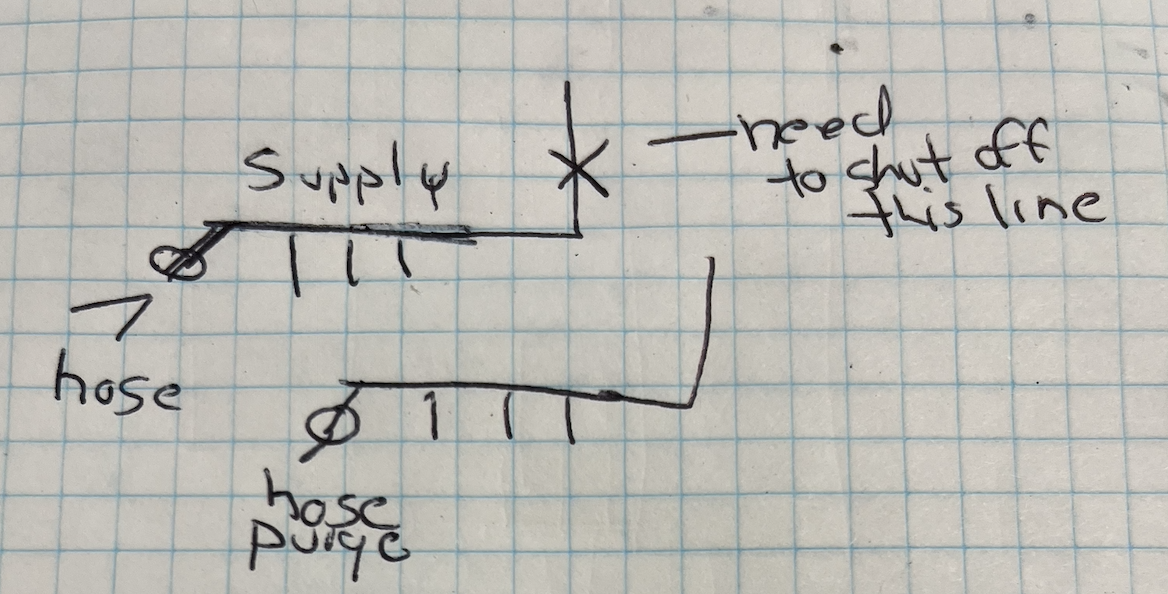 Supply
need
to shut off
this line
hose
hose
purge